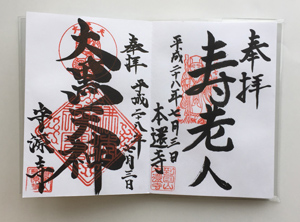 奉拝
寿老人
平成二十八年七月三日
本還寺
奉拝
平成二十八年
七月三日
大黒天神